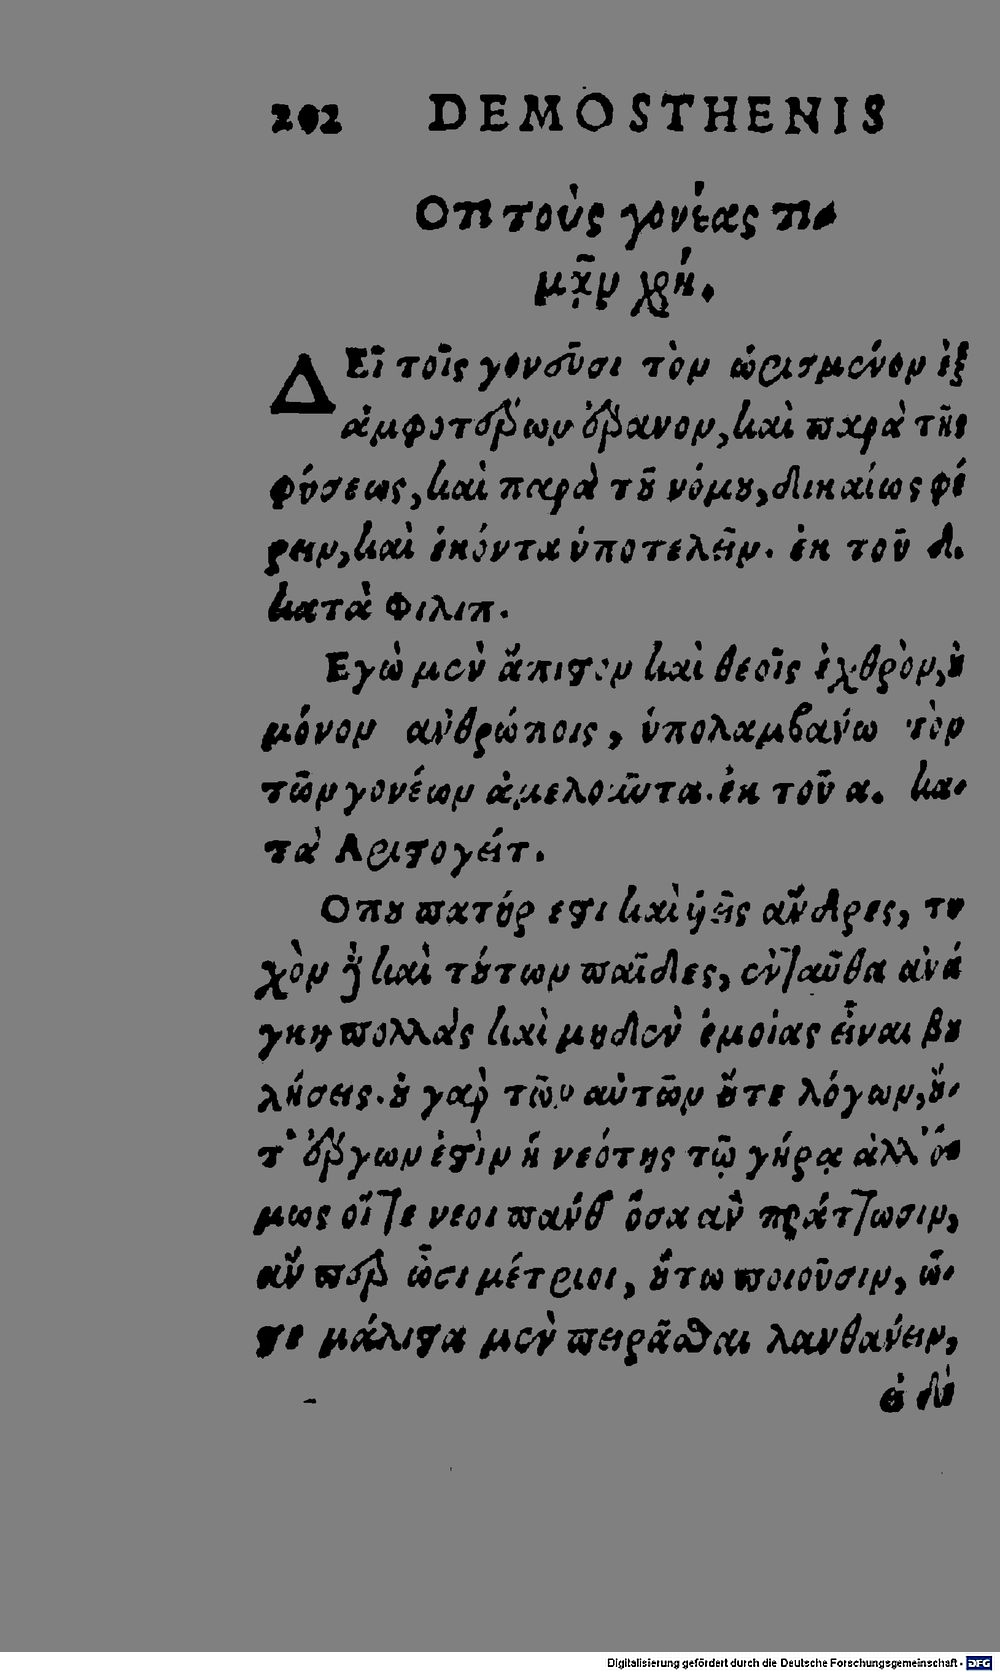 202 DEMOSTHENIS
Οτι τοὺς γονέας τι-
μᾷν χρή.
ΔΕῖ τοῖς γονεῦσι τὸν ὡρισμένον ἐξ
ἀμφοτέρων ἔρανον, καὶ παρὰ τῆς
φύσεως, καὶ παρὰ τοῦ νόμου, δικαίως φέ
ρειν, καὶ ἑκόντα ὑποτελεῖν. ἐκ τοῦ δ.
κατὰ Φιλιπ.
Εγὼ μὲν ἄπιστον καὶ θεοῖς ἐχθρὸν, οὐ
μόνον ἀνθρώποις, ὑπολαμβάνω τὸν
τῶν γονέων ἀμελοῦντα. ἐκ τοῦ α. κα-
τὰ Αριστογείτ.
Οπου πατήρ εστι καὶ ὑεῖς ἄνδρες, τυ
χὸν δὲ καὶ τούτων παῖδες, ἐνταῦθα ἀνά
γκη πολλὰς καὶ μηδὲν ὁμοίας εἶναι βου
λήσεις. οὐ γὰρ τῶν αὐτῶν οὔτε λόγων, οὔ-
τ' ἔργων ἐστὶν ἡ νεότης τῷ γήρᾳ ἀλλ' ὅ-
μως οἵ τε νεοι πάνθ' ὅσα ἂν πράττωσιν,
ἄν περ ὦσι μέτριοι, οὕτω ποιοῦσιν, ὥ-
στε μάλιστα μὲν πειρᾶσθαι λανθάνειν,
ἐ δὲ
Digitalisierung gefördert durch die Deutsche Forschungsgemeinschaft - DFG